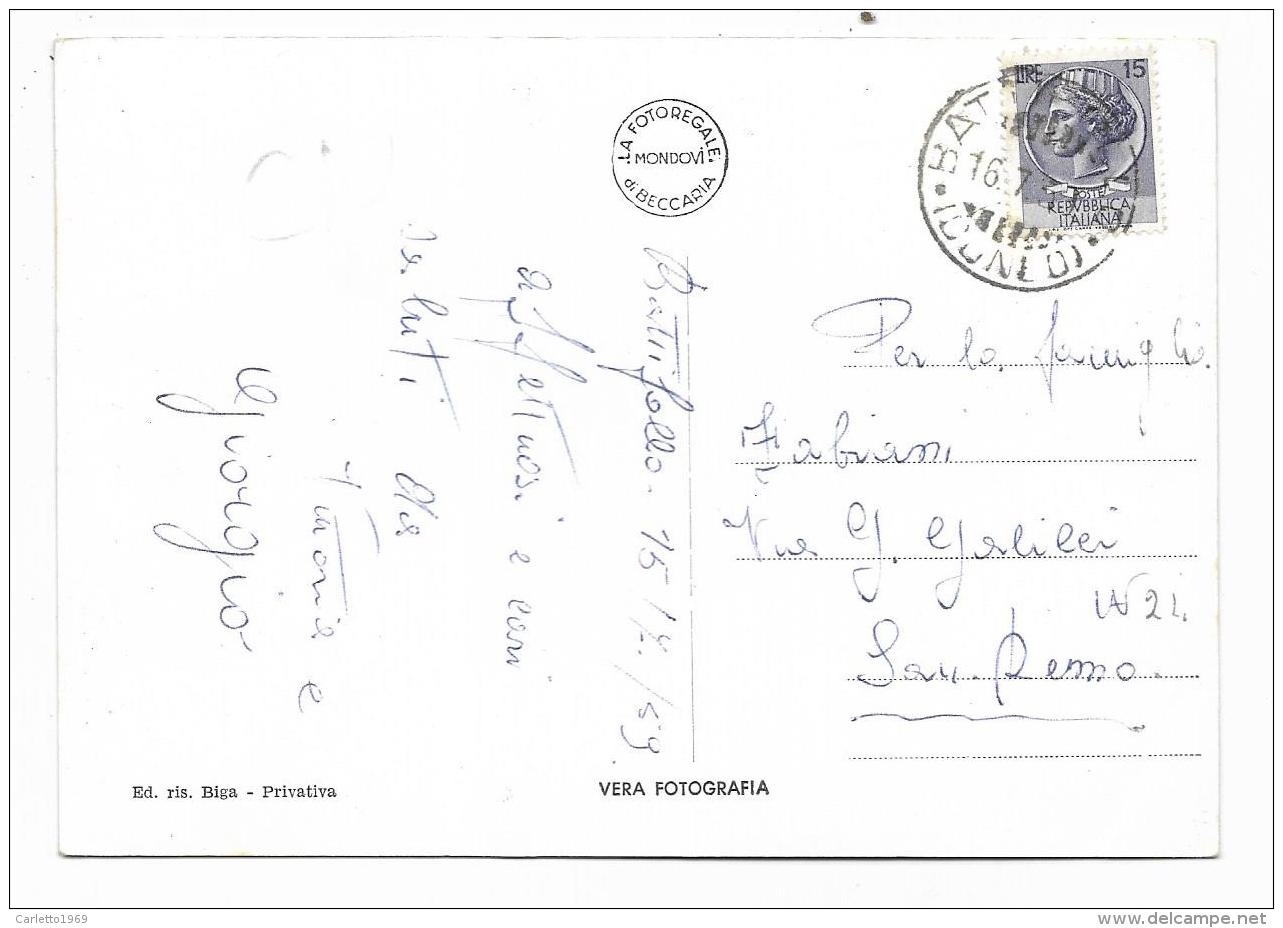 LA FOTOREGALE
MONDOVÌ
di BECCARIA
LIRE 15
POSTE
REPVBBLICA
ITALIANA
16.7
(CUNEO)
Battifollo. 15/7/59
affettuosi e cari
saluti
e
Giorgio
Per la famiglia
Fabiani
Via G. Galilei
San Remo.
Ed. ris. Biga - Privativa
VERA FOTOGRAFIA
Carletto1969
delcampe.net